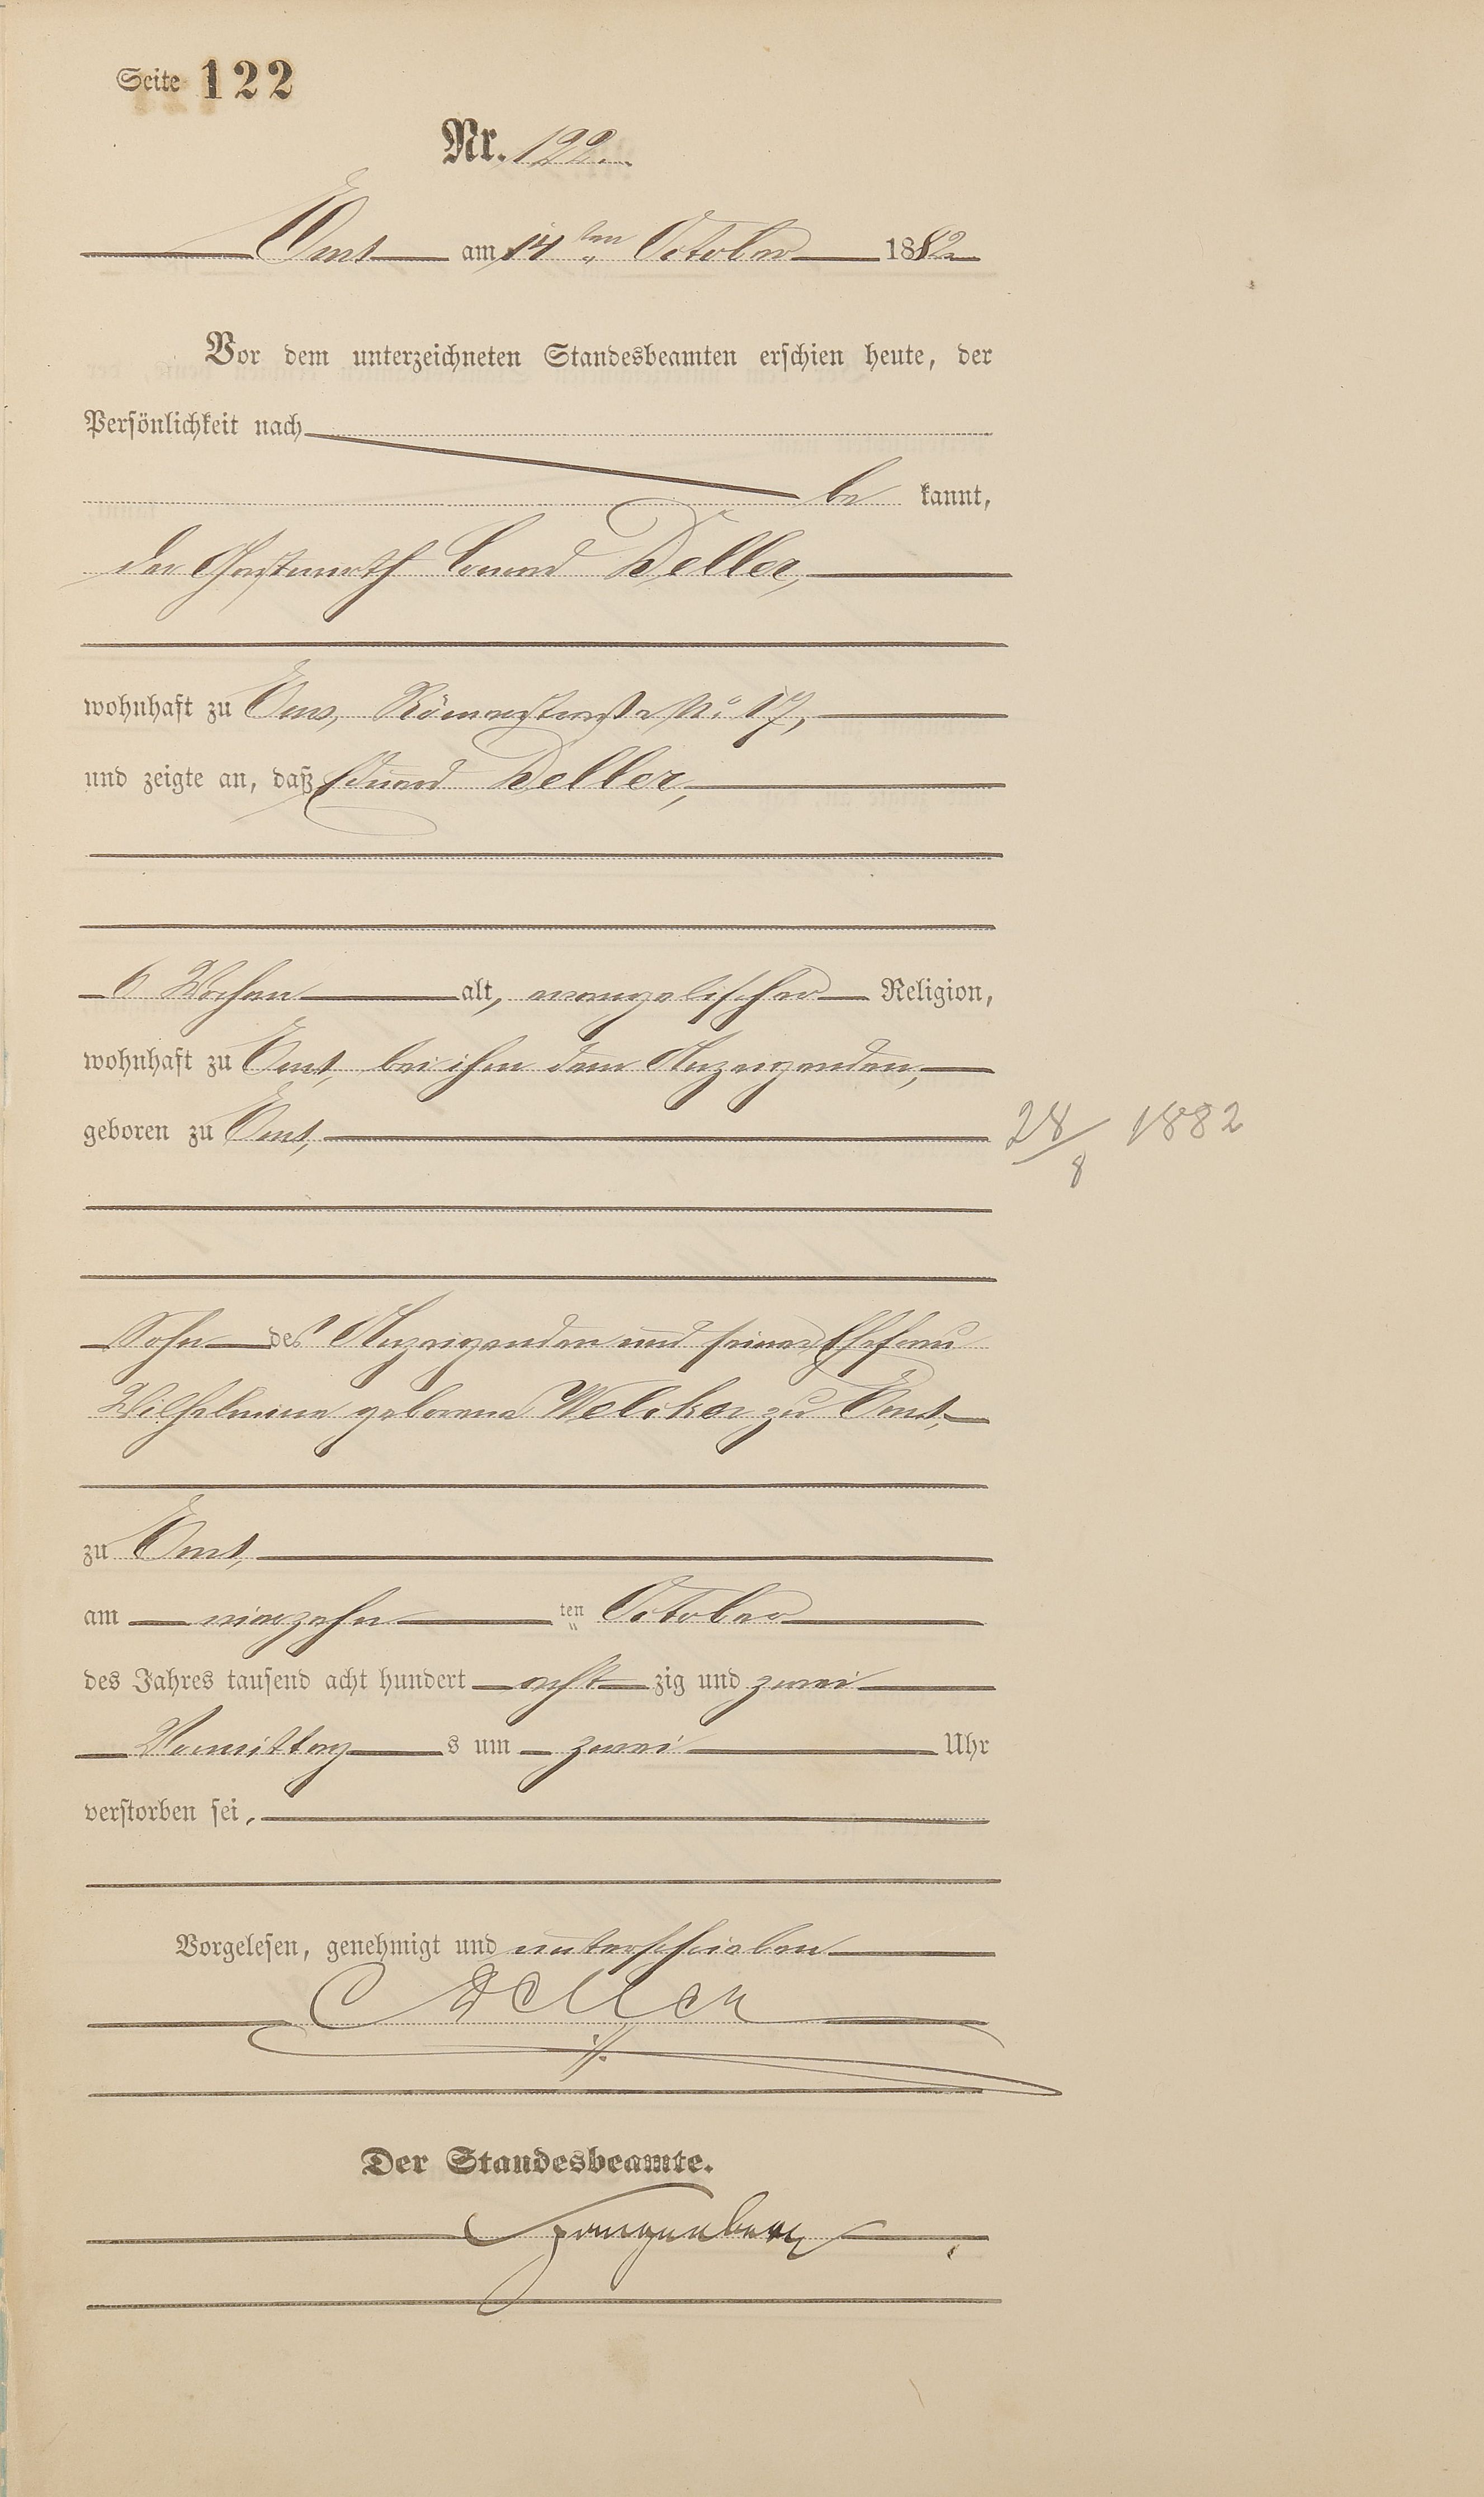 Seite 122
Nr. 122.
Ems am 14ten October 1882
Vor dem unterzeichneten Standesbeamten erschien heute, der
Persönlichkeit nach
be kannt,
der Gastwirth Conrad Deller,
wohnhaft zu Ems, Römerstraße No. 17,
und zeigte an, daß Eduard Deller,
6 Wochen alt, evangelischer Religion,
wohnhaft zu Ems, bei ihm dem Anzeigenden,
geboren zu Ems, 28/8 1882
Sohn des Anzeigenden und seiner Ehefrau
Wilhelmine geborene Welcker zu Ems,
zu Ems,
am vierzehn ten October
des Jahres tausend acht hundert acht zig und zwei
Vormittag s um zwei Uhr
verstorben sei,
Vorgelesen, genehmigt und unterschrieben
C Deller
Der Standesbeamte.